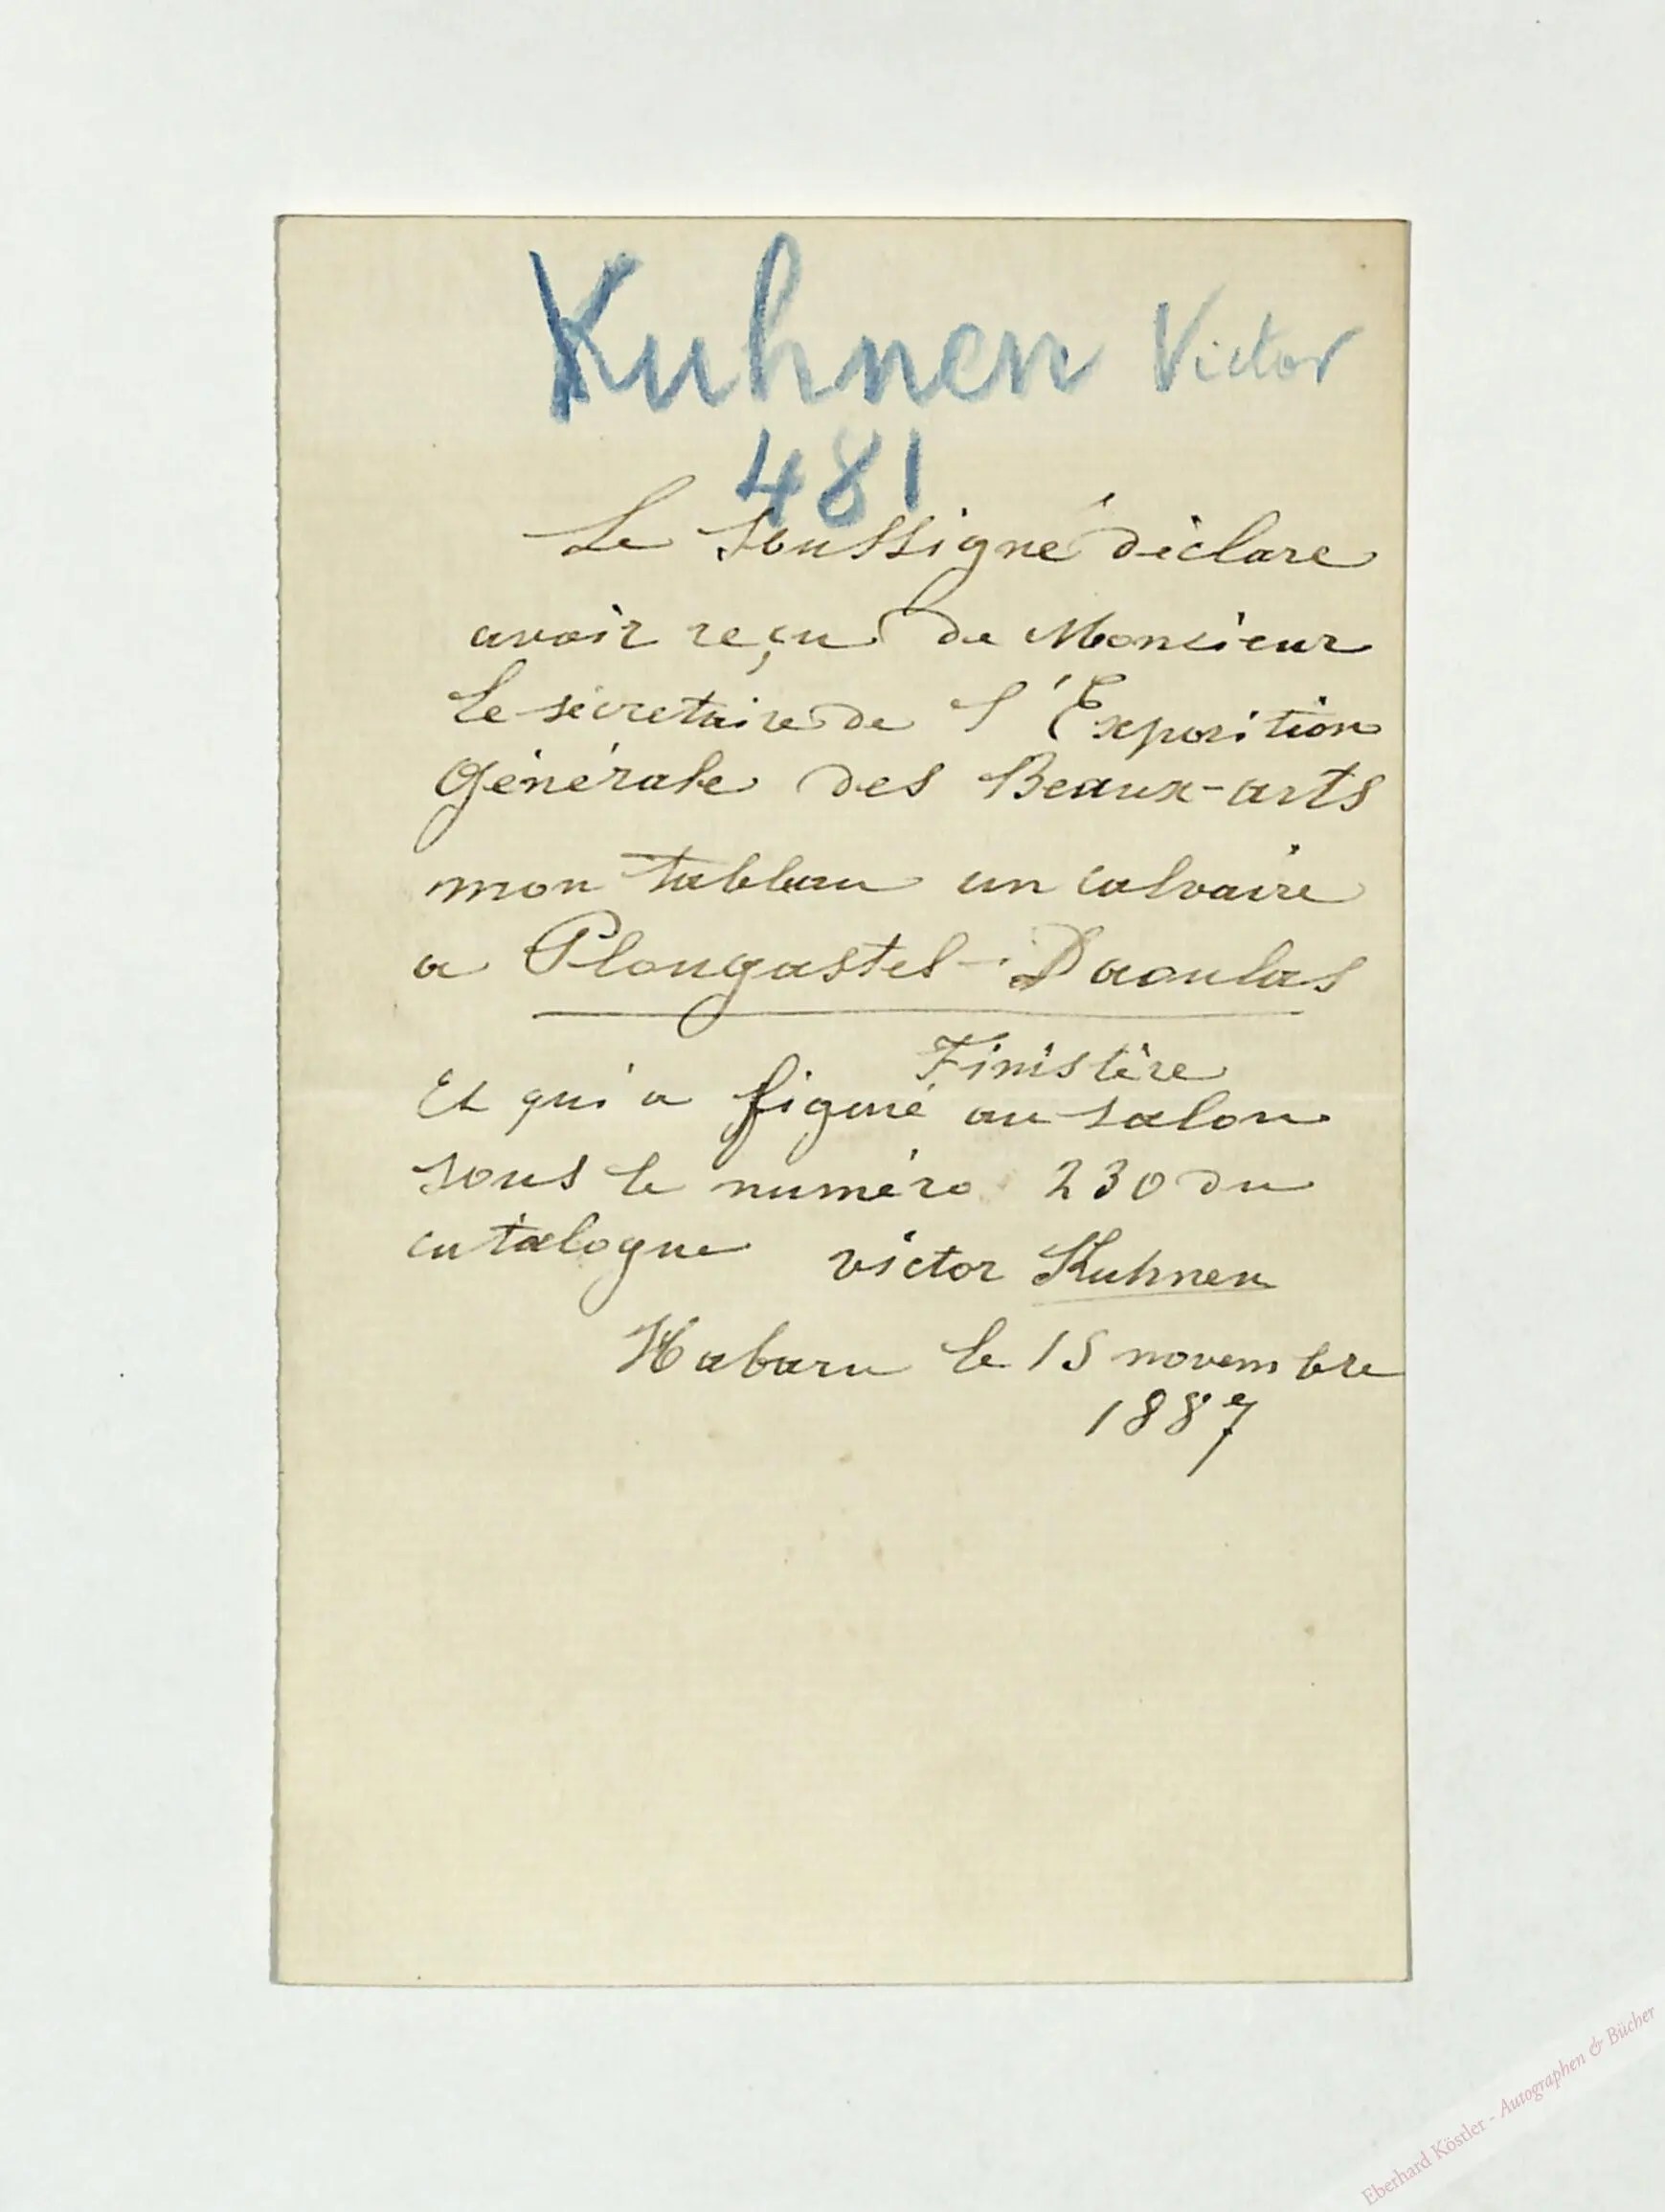 Kuhnen Victor
481
Le soussigné déclare
avoir reçu de Monsieur
le sécretaire de l'Exposition
Générale des Beaux-arts
mon tableau un calvaire
a Plougastel-Daoulas
Finistère
Et qui a figuré au salon
sous le numéro 230 du
catalogue victor Kuhnen
Habaru le 15 novembre
1887
Eberhard Köstler - Autographen & Bücher